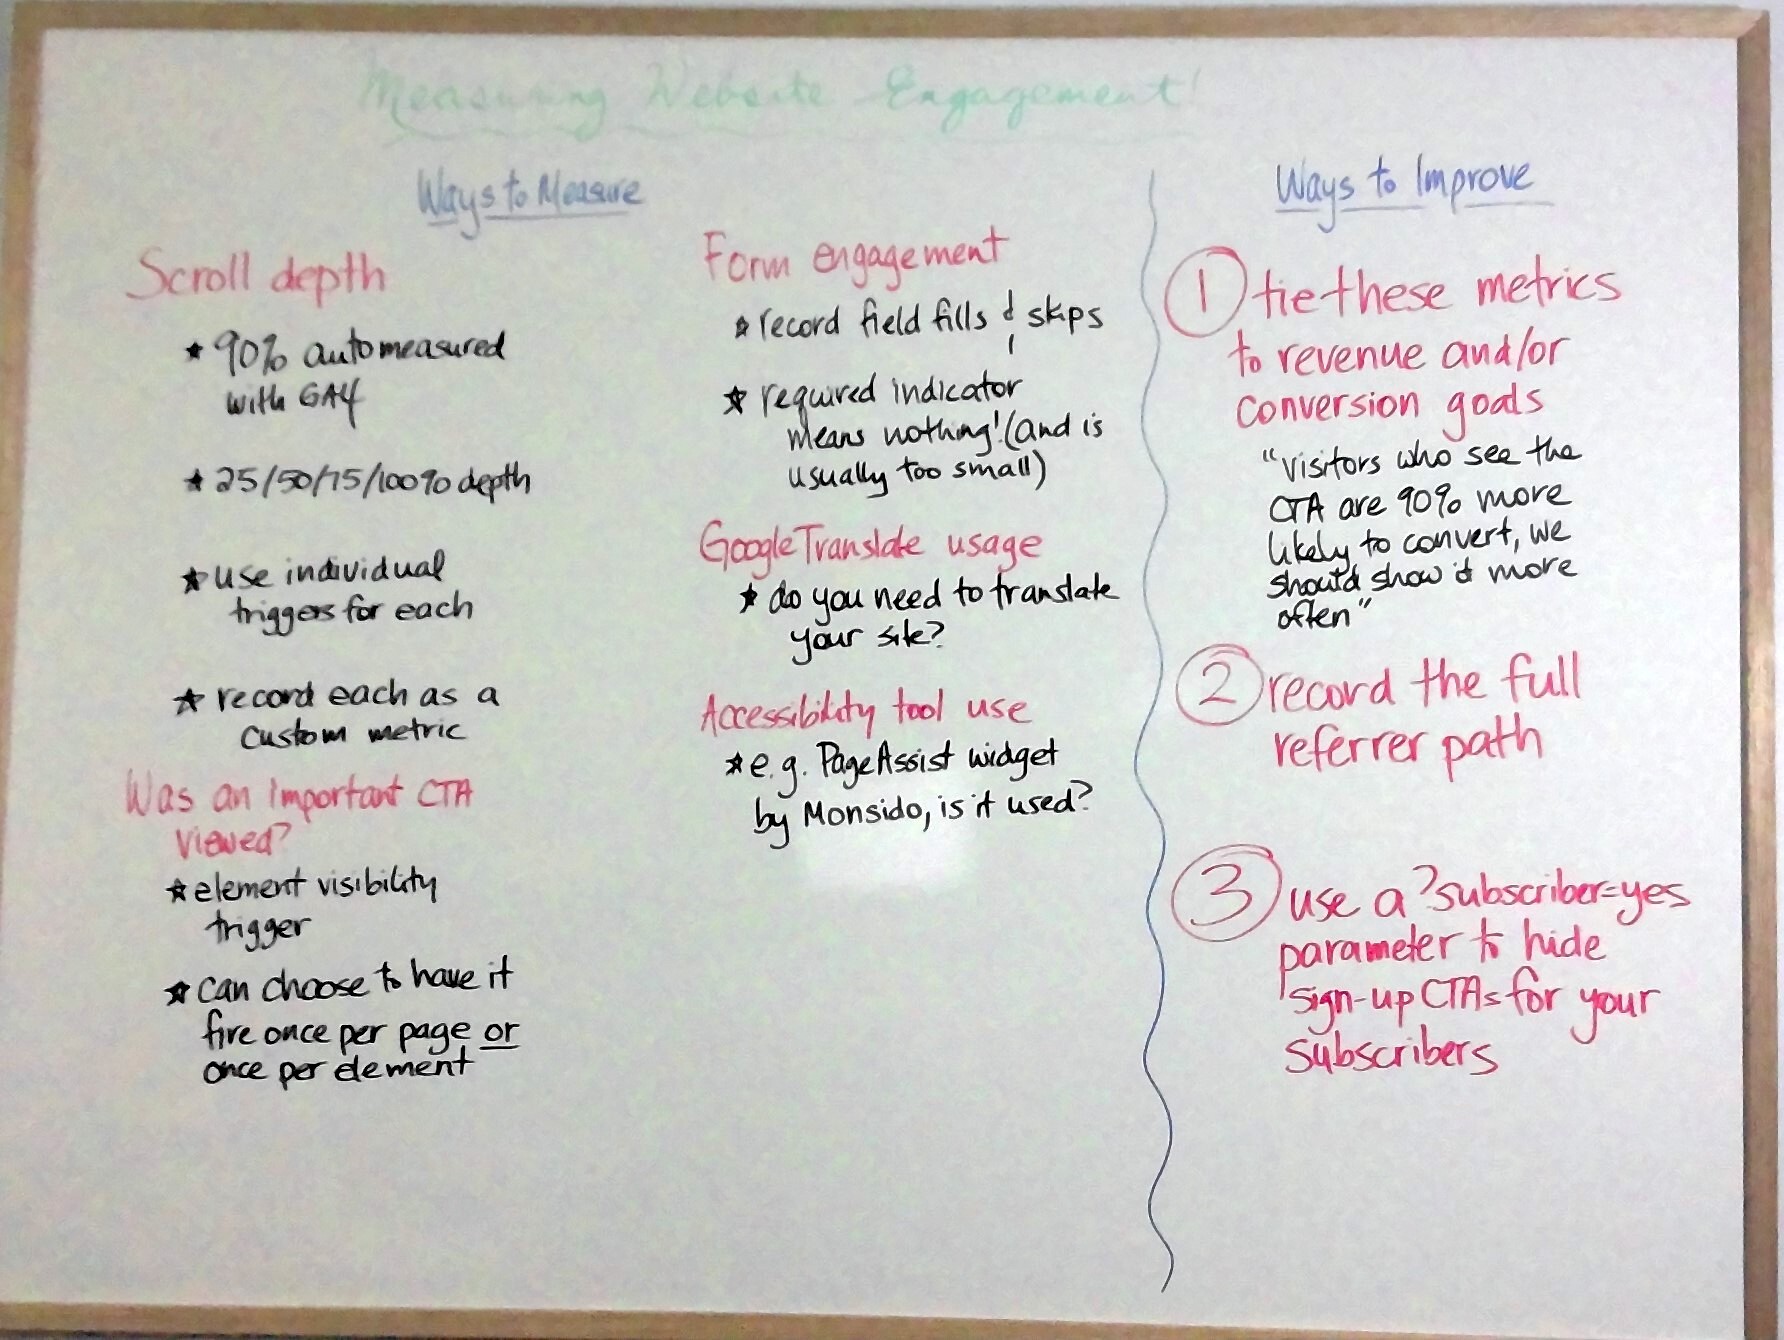 Measuring Website Engagement!
Ways to Measure
Scroll depth
★ 90% automeasured
with GA4
★ 25/50/75/100% depth
★ use individual
triggers for each
★ record each as a
custom metric
Was an important CTA
viewed?
★ element visibility
trigger
★ can choose to have it
fire once per page or
once per element
Form engagement
★ record field fills & skips
★ required indicator
means nothing! (and is
usually too small)
Google Translate usage
★ do you need to translate
your site?
Accessibility tool use
★ e.g. PageAssist widget
by Monsido, is it used?
Ways to Improve
1 tie these metrics
to revenue and/or
conversion goals
"visitors who see the
CTA are 90% more
likely to convert, we
should show it more
often"
2 record the full
referrer path
3 use a ?subscriber=yes
parameter to hide
sign-up CTAs for your
subscribers